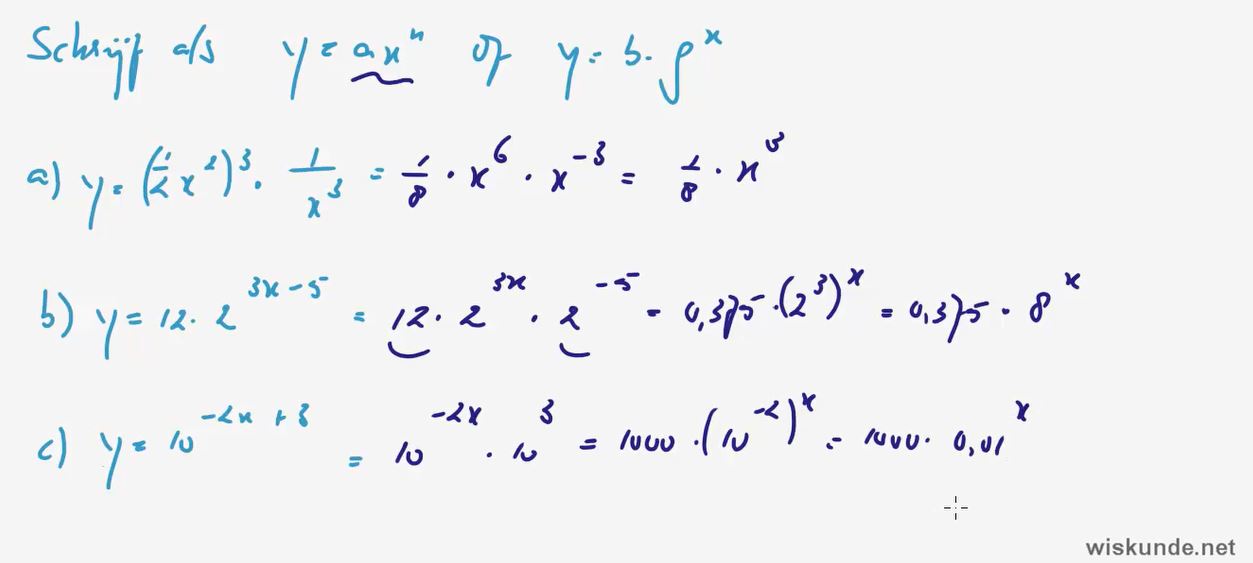 Schrijf als y = ax^n of y = b · g^x
a) y = (1/2 x^2)^3 · 1/x^3 = 1/8 · x^6 · x^-3 = 1/8 · x^3
b) y = 12 · 2^(3x-5) = 12 · 2^(3x) · 2^-5 = 0,375 · (2^3)^x = 0,375 · 8^x
c) y = 10^(-2x+3) = 10^(-2x) · 10^3 = 1000 · (10^-2)^x = 1000 · 0,01^x
wiskunde.net